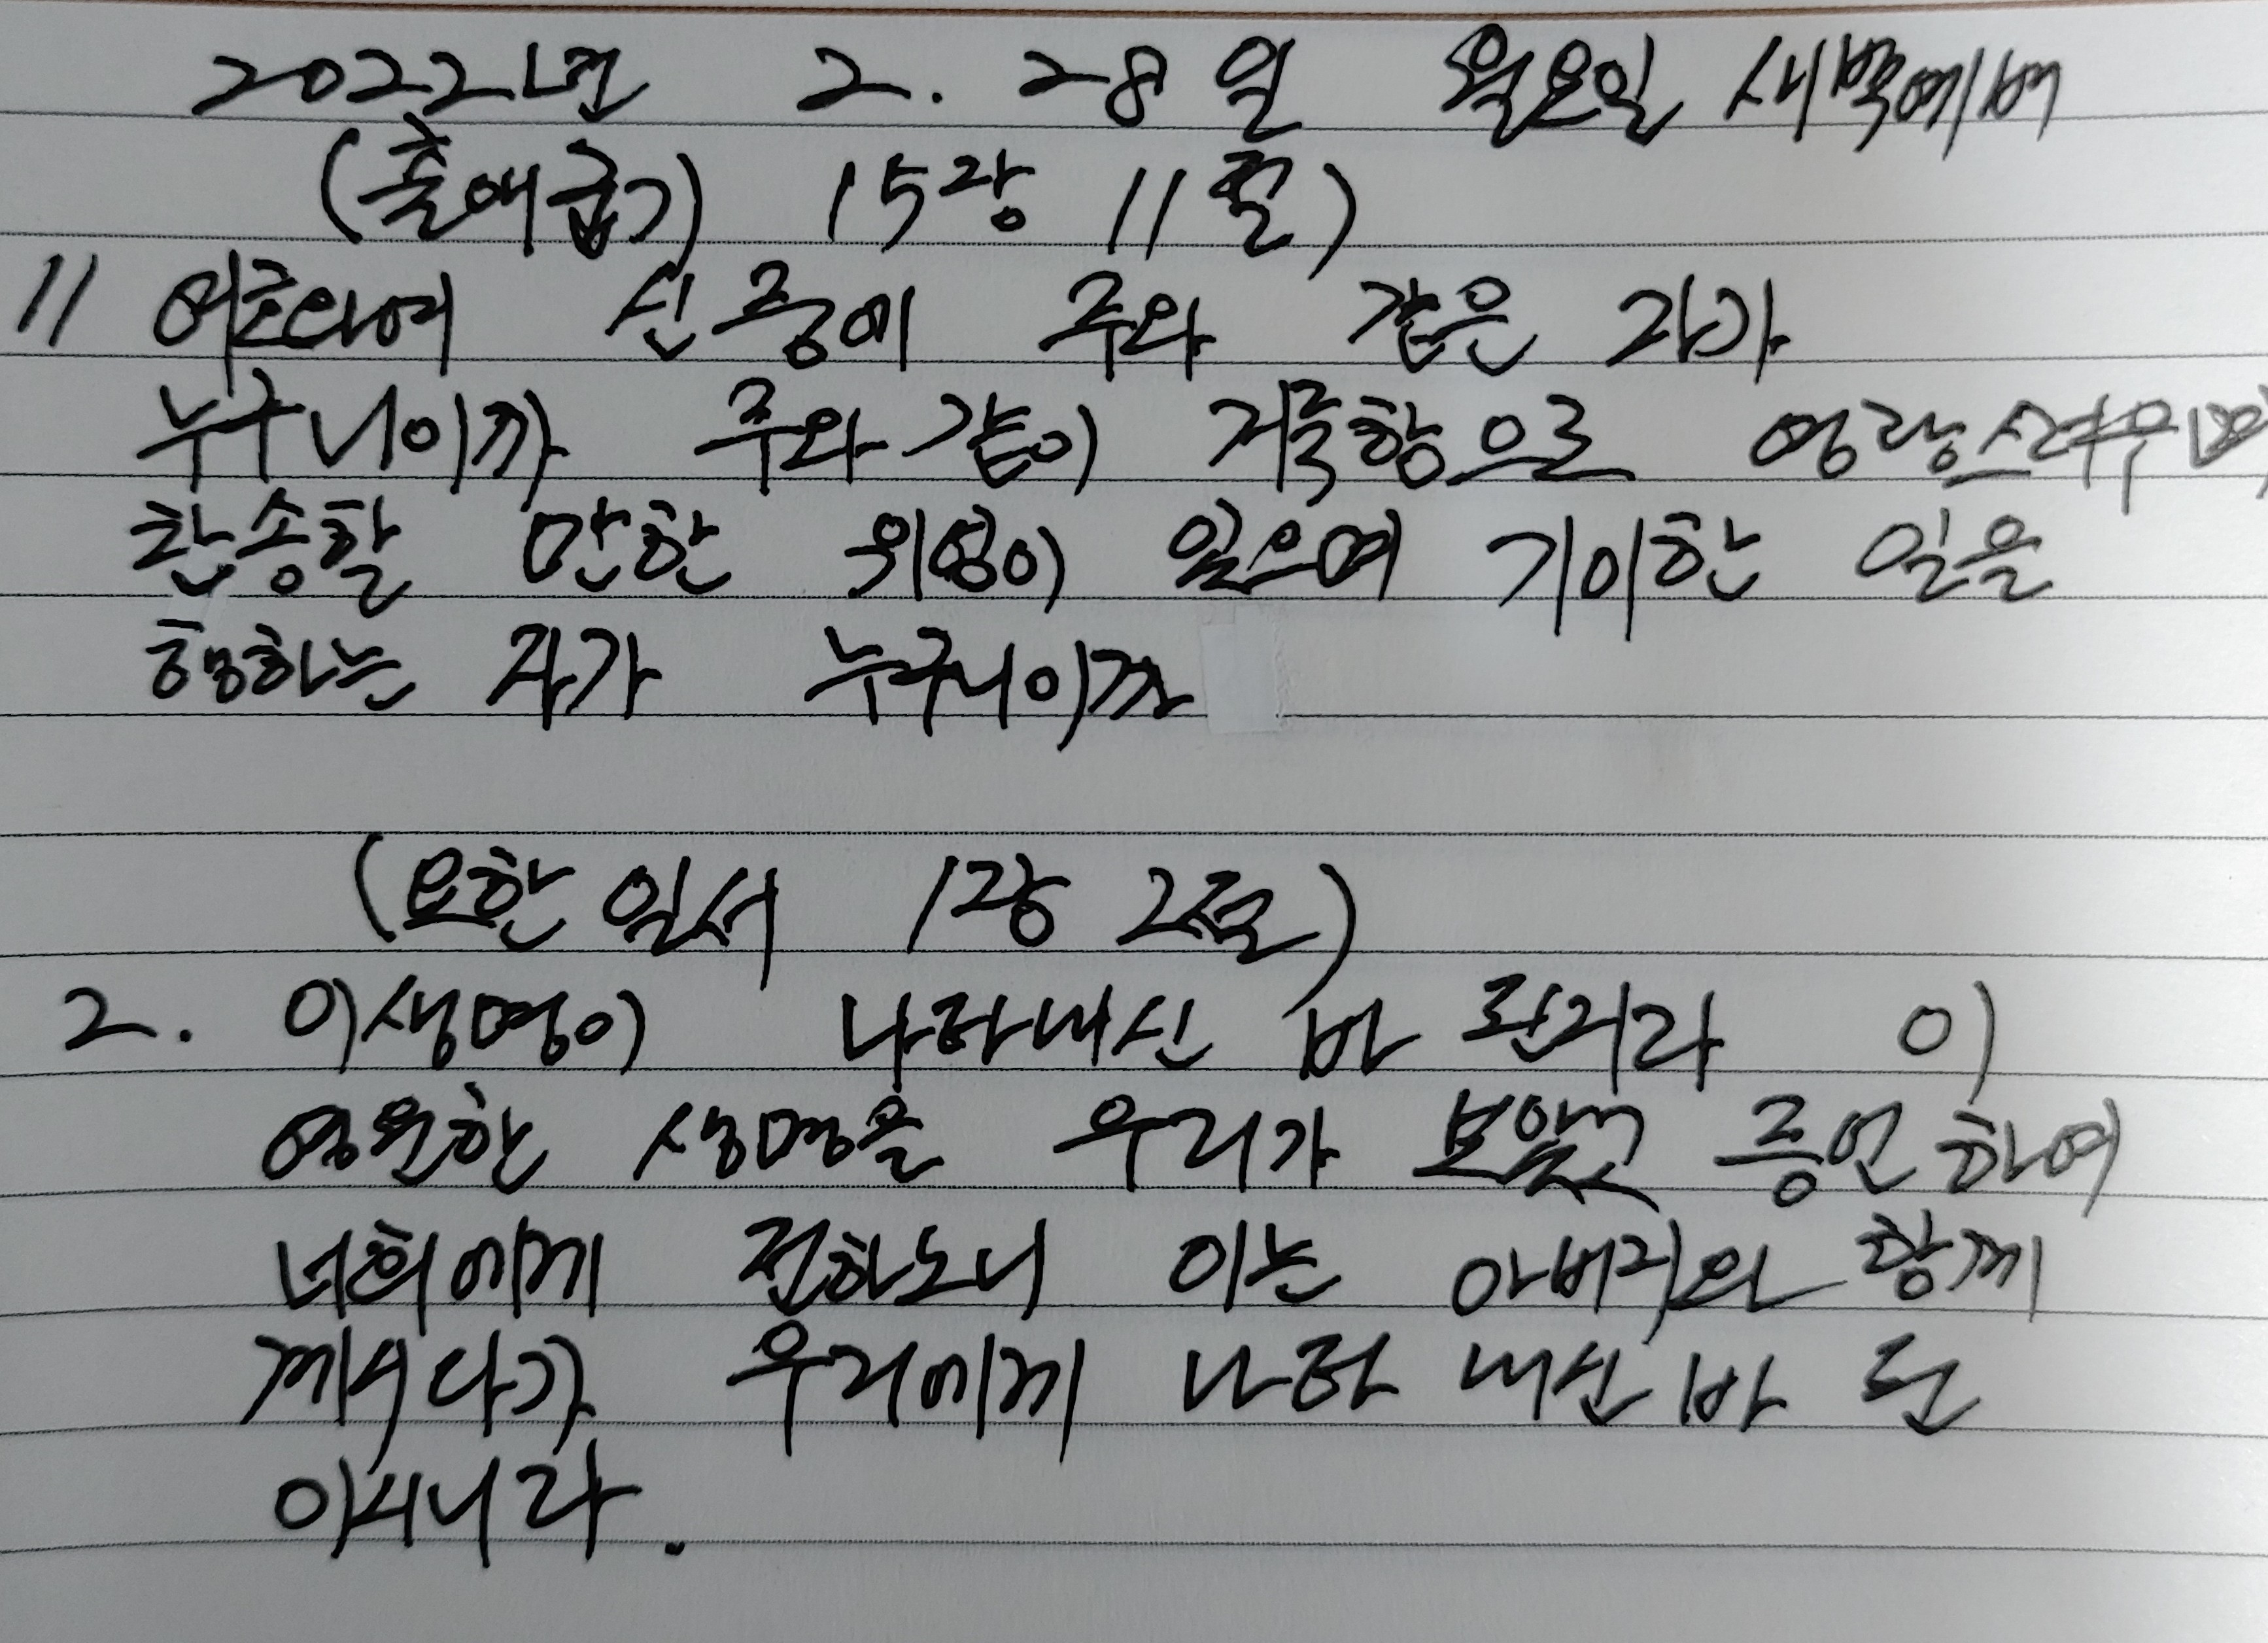 2022년 2. 28일 월요일 새벽예배
(출애굽기) 15장 11절)
11 여호와여 신 중에 주와 같은 자가
누구니이까 주와 같이 거룩함으로 영광스러우며
찬송할 만한 위엄이 있으며 기이한 일을
행하는 자가 누구니이까
(요한 일서 1장 2절)
2. 이생명이 나타내신 바 된지라 이
영원한 생명을 우리가 보았고 증언하여
너희에게 전하노니 이는 아버지와 함께
계시다가 우리에게 나타 내신 바 된
이시니라.